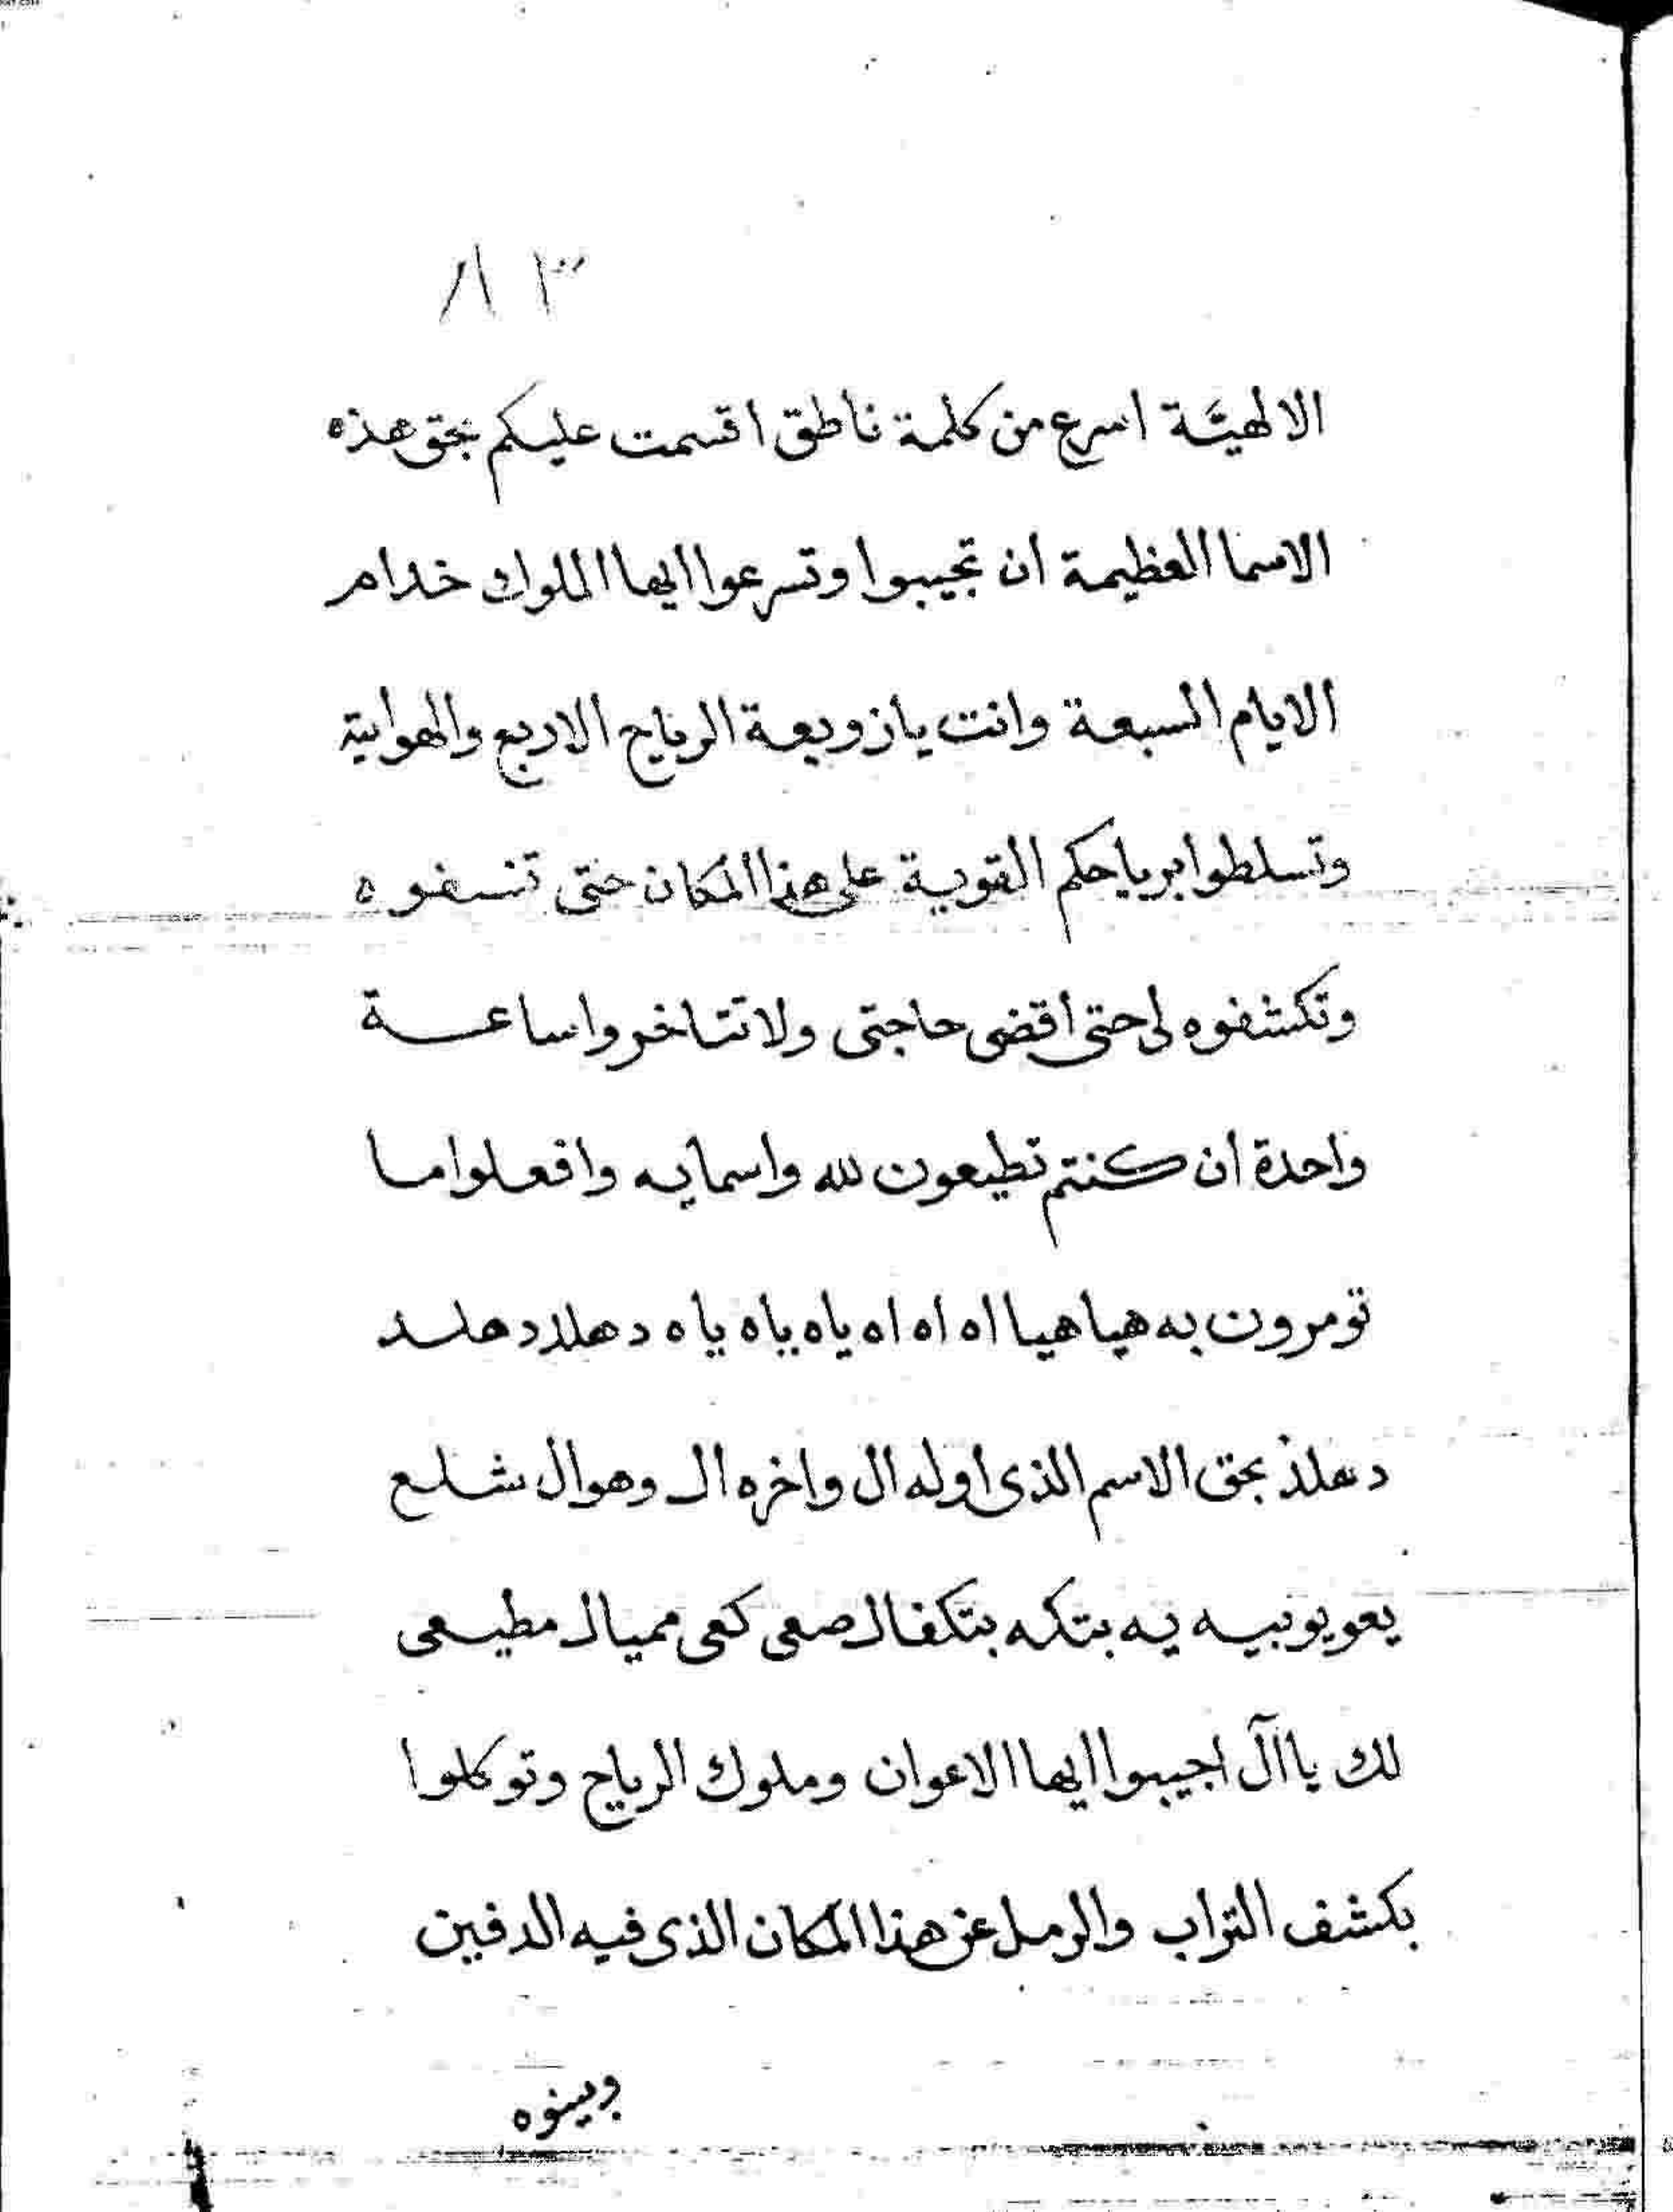 ٨٣
الالهيَّة اسرع من كلمة ناطق اقسمت عليكم بحق هذه
الاسما العظيمة ان تجيبوا وتسرعوا ايها الملوك خدام
الايام السبعة وانت يا زوبعة الرياح الاربع والهواية
وتسلطوا برياحكم القوية على هذا المكان حتى تنسفوه
وتكشفوه لى حتى اقضى حاجتى ولا تتاخروا ساعة
واحدة ان كنتم تطيعون لله واسمايه وافعلوا ما
تومرون به هيا هيا اه اه اه ياه ياه ياه دهلدد هلد
دهلذ بحق الاسم الذى اوله ال واخره ال وهو ال شلع
يعو يوبيه يه بتكه بتكفال صعى كعى مميال مطيعى
لك يا آل اجيبوا ايها الاعوان وملوك الرياح وتوكلوا
بكشف التراب والرمل عن هذا المكان الذى فيه الدفين
وبينوه